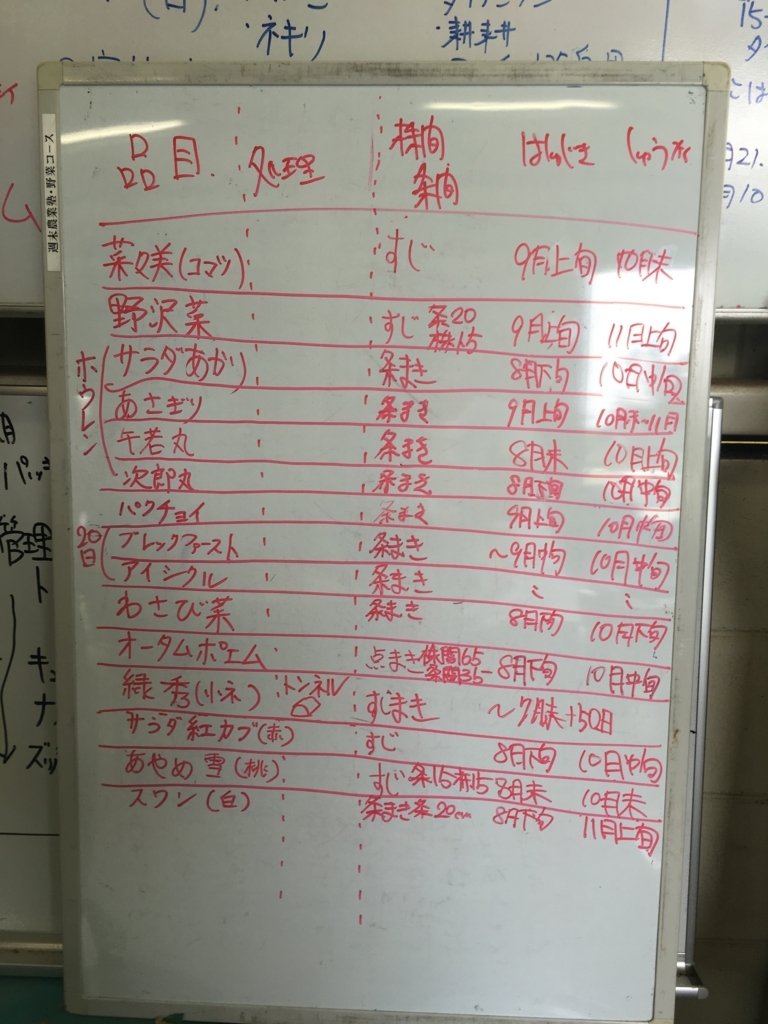 (日)
・ネキリ
・耕耘
15-
タ
こは
月21.
月10
ム
週末農業塾・野菜コース
品目. 処理 株間 条間 はしゅじき しゅうかく
菜々美(コマツ) すじ 9月上旬 10月末
野沢菜 すじ 条20 株15 9月上旬 11月上旬
ホウレン
サラダあかり 条まき 8月下旬 10月中旬
あさぎり 条まき 9月上旬 10月末~11月
牛若丸 条まき 8月末 10月上旬
次郎丸 条まき 8月下旬 10月中旬
パクチョイ 条まき 9月上旬 10月中旬
20日
ブレックファースト 条まき ~9月中旬 10月中旬
アイシクル 条まき 〃 〃
わさび菜 条まき 8月下旬 10月下旬
オータムポエム 点まき 株間65 条間35 8月下旬 10月中旬
緑秀(小ネ) トンネル すじまき ~7月末 +50日
サラダ紅カブ(赤) すじ 8月下旬 10月中旬
あやめ雪(桃) すじ 条15 株15 8月末 10月末
スワン(白) 条まき 条20cm 8月下旬 11月上旬
管理
ト
キュ
ナ
ズッ